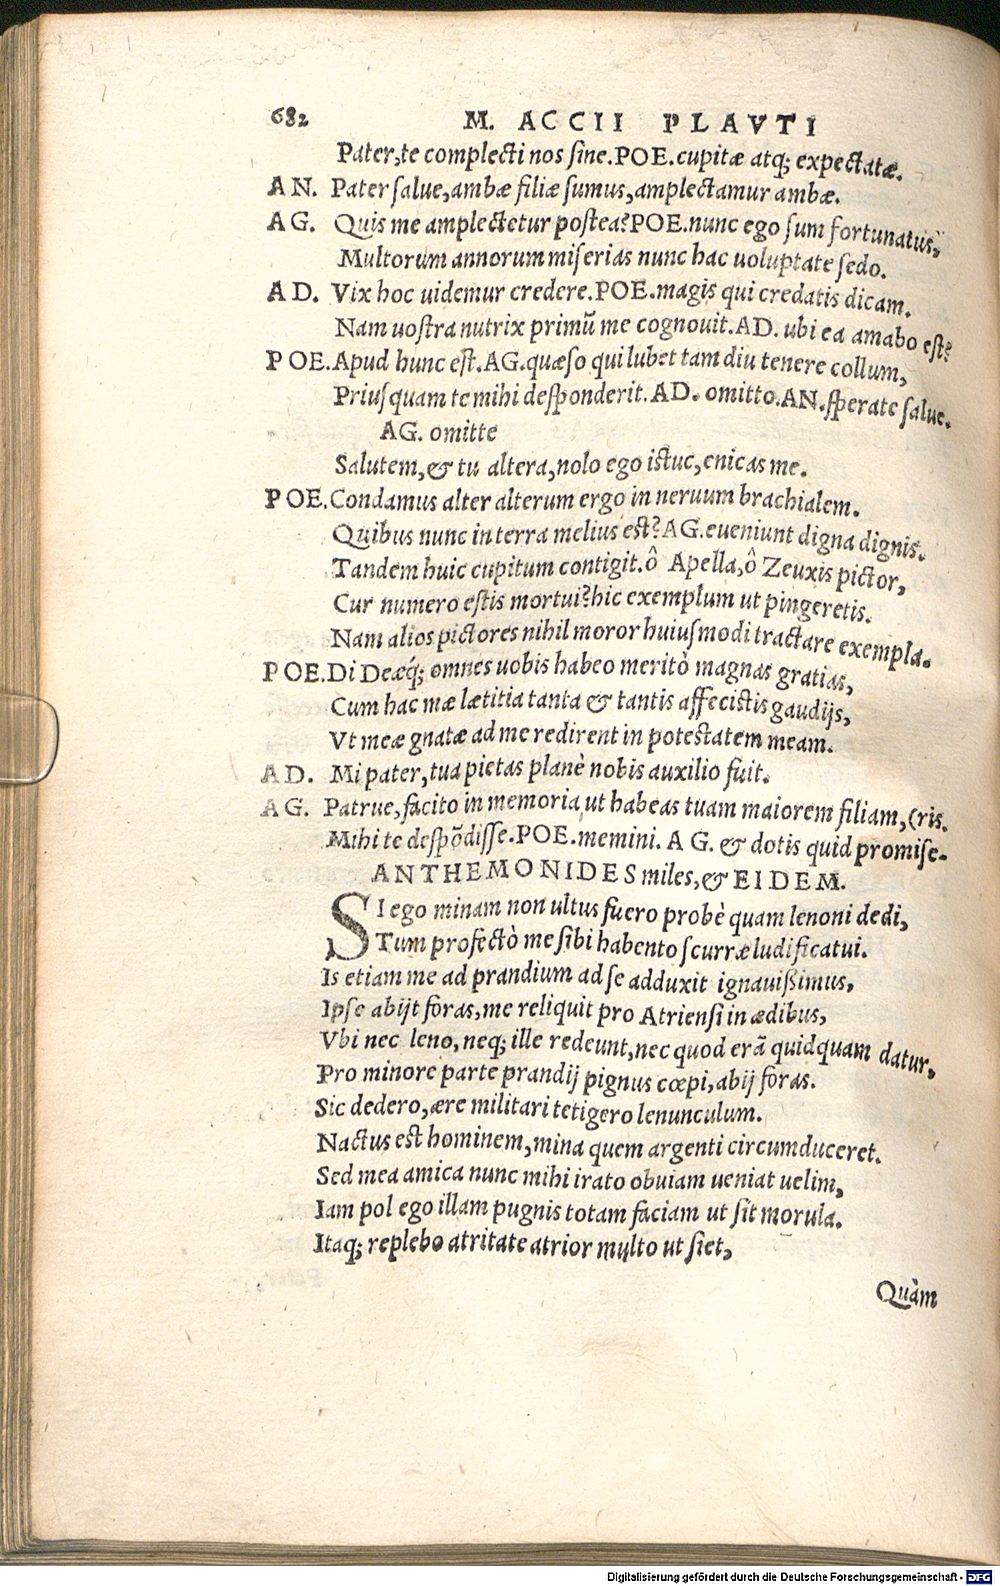 682 M. ACCII PLAVTI
Pater, te complecti nos sine. POE. cupitæ atq; expectatæ.
AN. Pater salue, ambæ filiæ sumus, amplectamur ambæ.
AG. Quis me amplectetur postea? POE. nunc ego sum fortunatus,
Multorum annorum miserias nunc hac uoluptate sedo.
AD. Vix hoc uidemur credere. POE. magis qui credatis dicam.
Nam uostra nutrix primũ me cognouit. AD. ubi ea amabo est?
POE. Apud hunc est. AG. quæso qui lubet tam diu tenere collum,
Priusquam te mihi desponderit. AD. omitto. AN. sperate salue.
AG. omitte
Salutem, & tu altera, nolo ego istuc, enicas me.
POE. Condamus alter alterum ergo in neruum brachialem.
Quibus nunc in terra melius est? AG. eueniunt digna dignis.
Tandem huic cupitum contigit. ô Apella, ô Zeuxis pictor,
Cur numero estis mortui? hic exemplum ut pingeretis.
Nam alios pictores nihil moror huiusmodi tractare exempla.
POE. Di Deæq́; omnes uobis habeo meritò magnas gratias,
Cum hac mæ lætitia tanta & tantis affecistis gaudijs,
Vt meæ gnatæ ad me redirent in potestatem meam.
AD. Mi pater, tua pietas planè nobis auxilio fuit.
AG. Patrue, facito in memoria ut habeas tuam maiorem filiam, (ris.
Mihi te despõdisse. POE. memini. AG. & dotis quid promise-
ANTHEMONIDES miles, & EIDEM.
SI ego minam non ultus fuero probè quam lenoni dedi,
Tum profectò me sibi habento scurræ ludificatui.
Is etiam me ad prandium ad se adduxit ignauißimus,
Ipse abijt foras, me reliquit pro Atriensi in ædibus,
Vbi nec leno, neq; ille redeunt, nec quod erã quidquam datur.
Pro minore parte prandij pignus cœpi, abij foras.
Sic dedero, ære militari tetigero lenunculum.
Nactus est hominem, mina quem argenti circumduceret.
Sed mea amica nunc mihi irato obuiam ueniat uelim,
Iam pol ego illam pugnis totam faciam ut sit morula.
Itaq; replebo atritate atrior multo ut siet,
Quàm
Digitalisierung gefördert durch die Deutsche Forschungsgemeinschaft - DFG